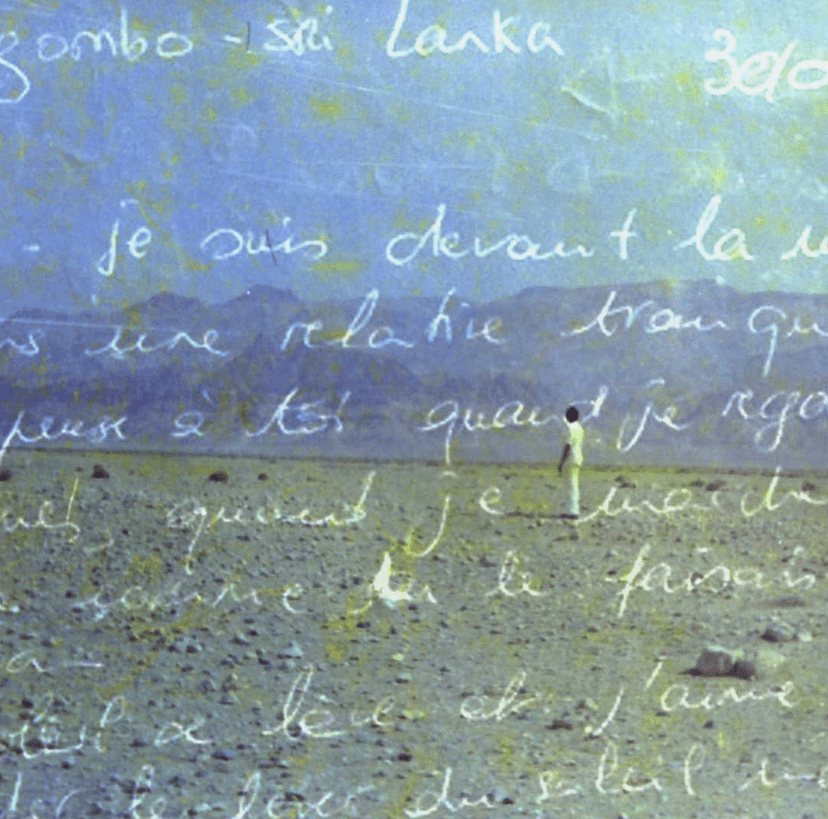 gombo - sri Lanka
- je suis devant la
une relative tranqu
pense à toi quand je rega
quand je marche
comme tu le faisais
a -
leil se lève et j'aime
der le lever du soleil